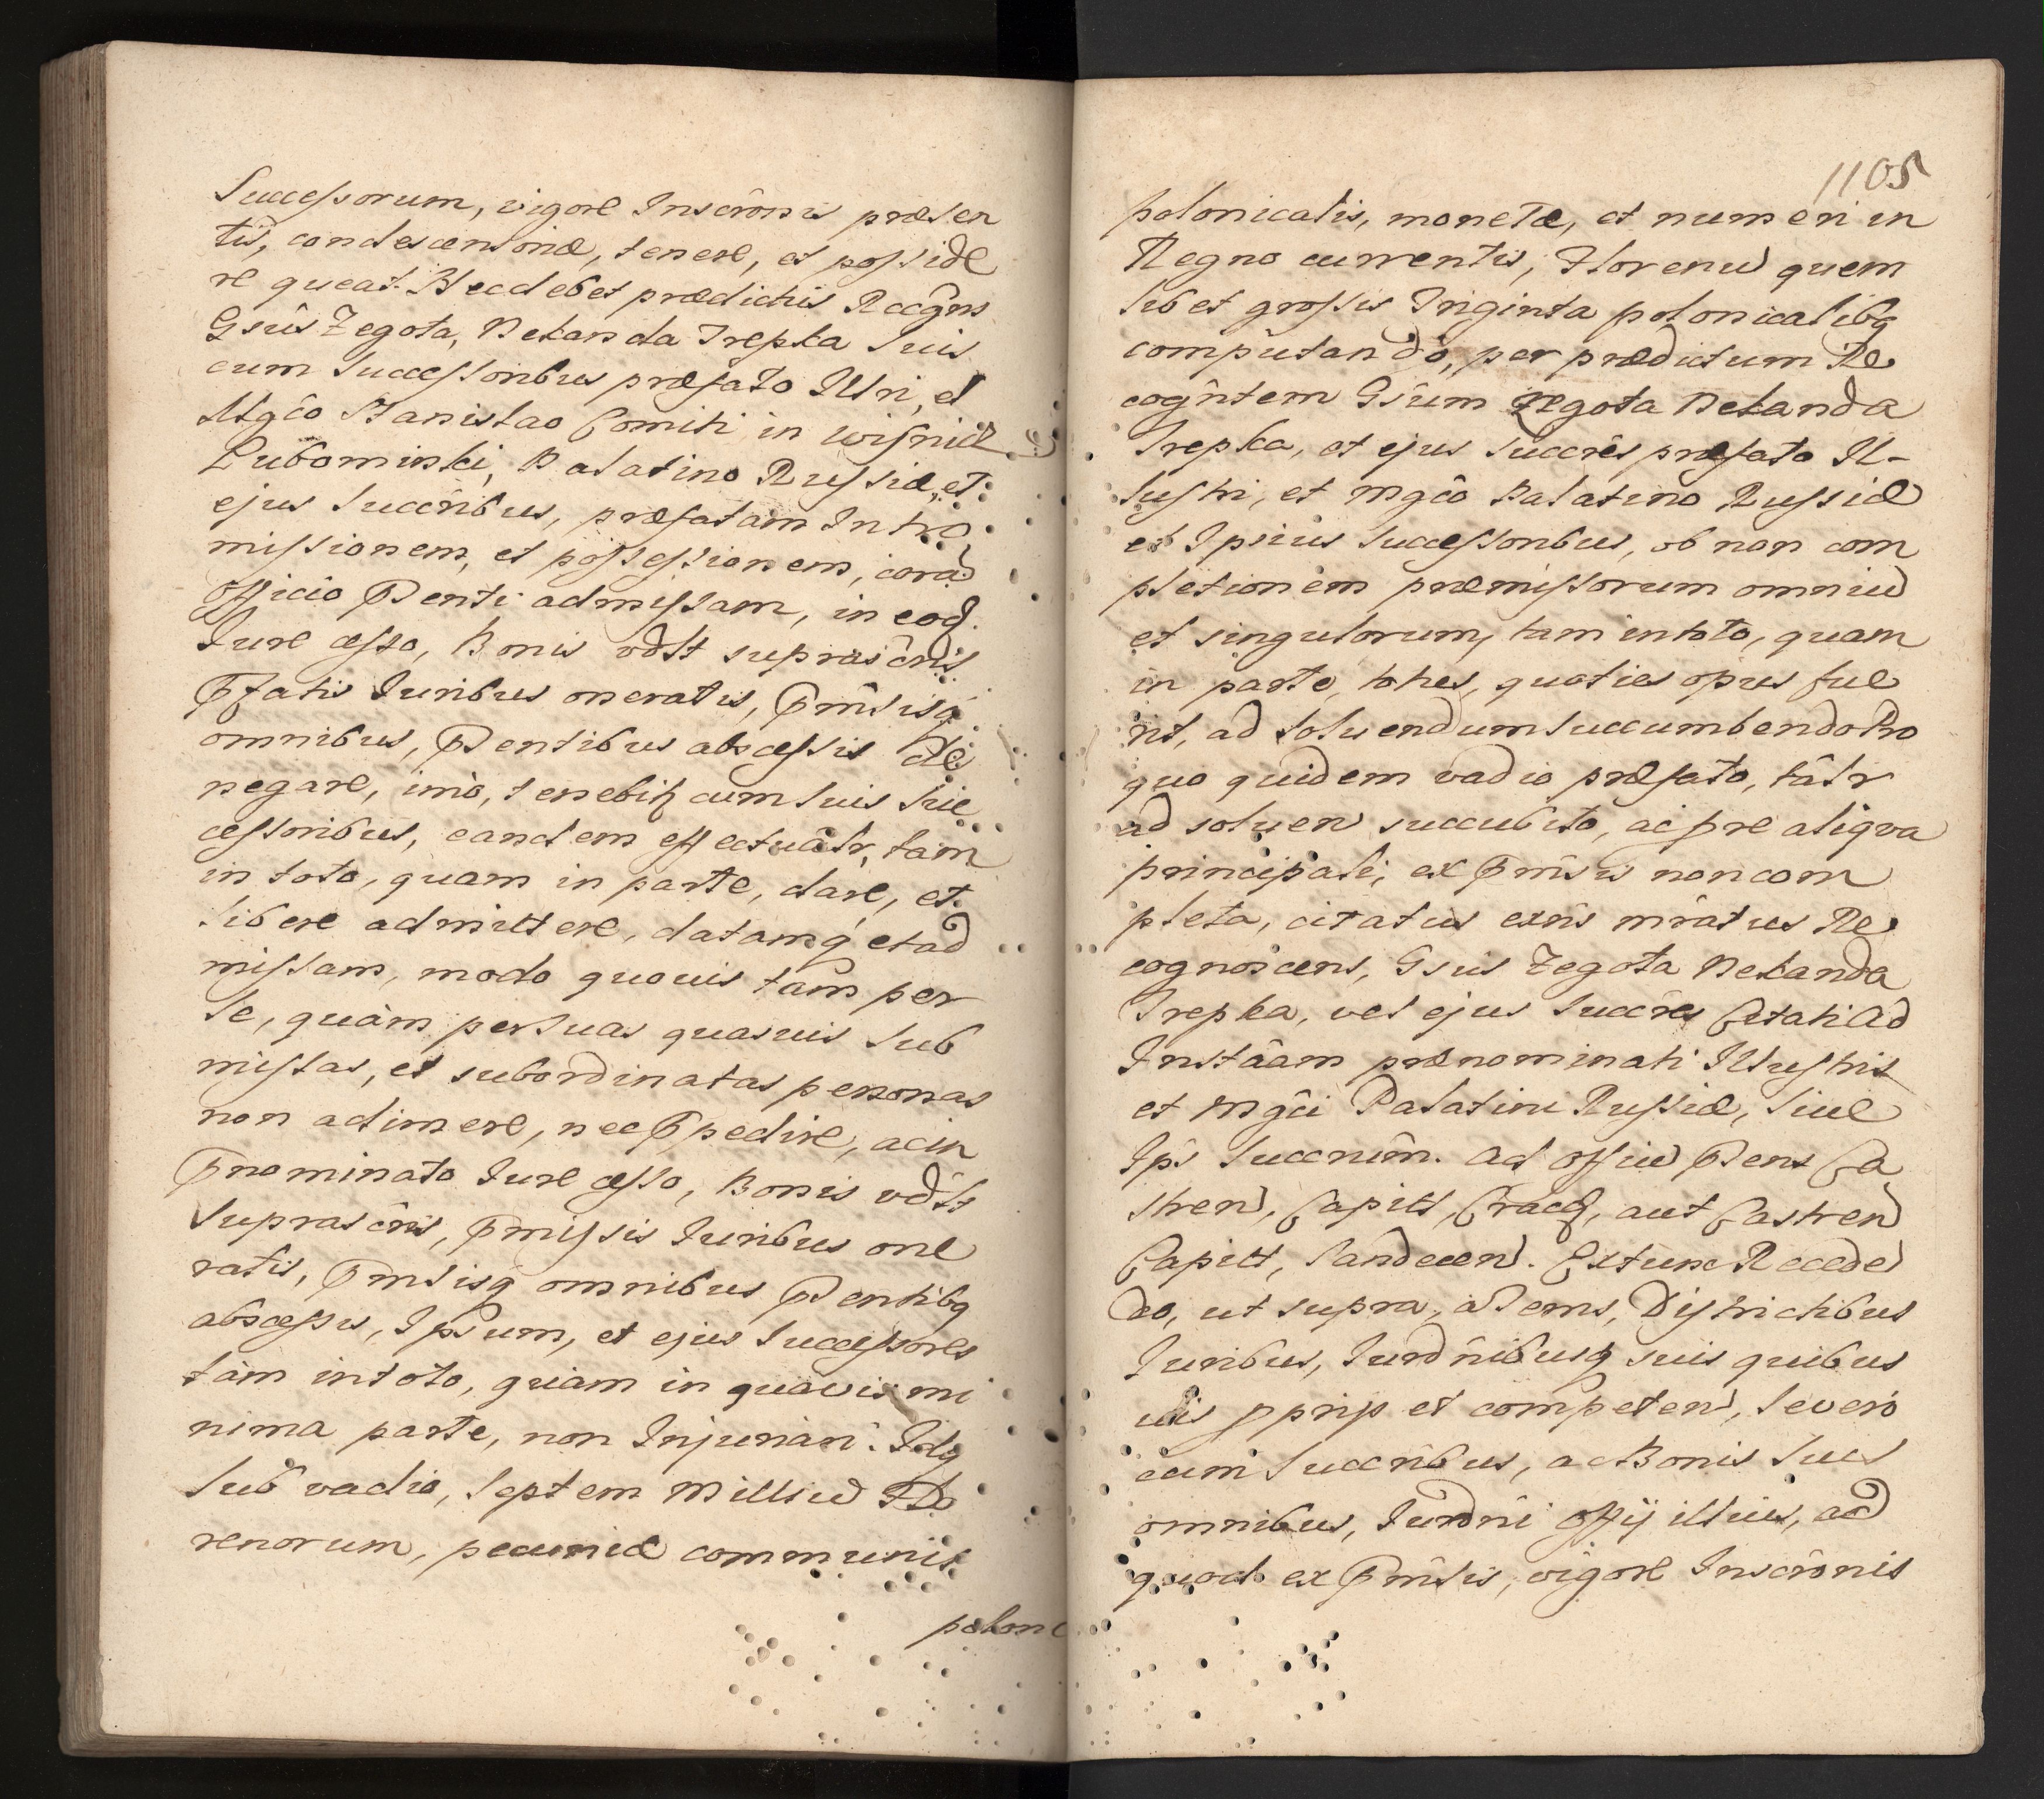 Successorum, vigore Inscrônis præsen
tis, condescensoriæ, tenere, et posside
re queat. Nec debet prædictus Recôgns
Gsûs Zegota, Nekanda Trepka suis
cum successoribus præfato Illri, et
Mgco Stanislao Comiti in Wisnicz
Lubomirski, Palatino Russiæ, et
ejus succribus, præfatam Intro
missionem, et possessionem, corâ
officio Pnti admissam, in eodq
Jure cesso, Bonis vdlt suprascriis
Pfatis Juribus oneratis, Pmîsisq
omnibus, Pentibus abscessis de
negare, imò, tenebitr cum suis suc
cessoribus, eandem effectuâlr, tàm
in toto, quam in parte, dare, et
libere admittere, datamq et ad
missam, modo quovis tàm per
se, quàm per suas quasvis sub
missas, et subordinatas personas
non adimere, nec Ppedire, ac in
Pnominato Jure cesso, Bonis vdlt
suprascris, Pmissis Juribus one
ratis, Pmsisq omnibus Pentibq
abscessis, Ipsum, et ejus successores
tàm in toto, quàm in quavis mi
nima parte, non Injuriari. Idq
sub vadio, septem Milliû Flo
renorum, pecuniæ communis
poloni
1105
polonicalis, monetæ, et numeri in
Regno currentis, Florenû quem
libet grossis Triginta polonicalibq
computando, per prædictum Re
cogntem Gsûm Zegota Nekanda
Trepka, et ejus succrês præfato Il-
lustri, et Mgco Palatino Russiæ
et Ipsius successoribus, ob non com
pletionem præmissorum omniû
et singulorum, tam in toto, quam
in parte, toties, quoties opus fue
rit, ad solvendum succumbendo Pro
quo quidem vadio præfato, tâlr
ad solven succubito, ac pre aliqva
principali, ex Pmîsis non com
pleta, citatus extis mratus Re
cognoscens, Gsus Zegota Nekanda
Trepka, vel ejus succres Citati Ad
Instâam prænominati Illustris
et Mgci Palatini Russiæ, sive
Ips succrûm. Ad offiû Pens Ca
stren, Capitt, Cracq, aut Castren
Capitt, Sandecen. Extunc Recede
do, ut supra, a Terris, Districtibus
Juribus, Jurdnibusq suis quibus
uis pprijs et competen, se vero
cum succribus, ac Bonis suis
omnibus, Jurdni Offij illius, ad
quod ex Pmîsis, vigore Inscrônis